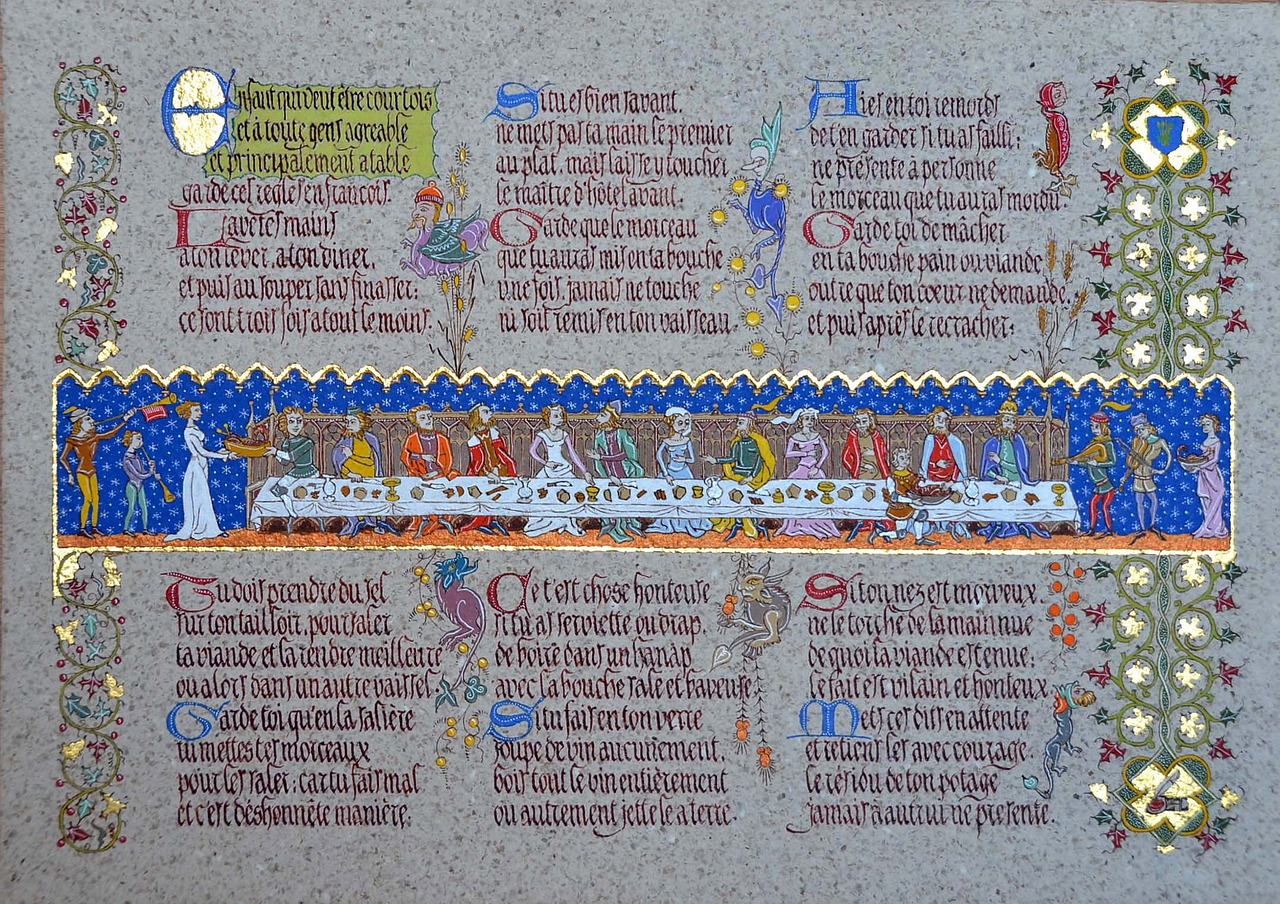 Enfant qui veut être courtois
et à toute gens agreable
et principalement a table
garde ces regles en francois.
Lave tes mains
a ton lever, a ton diner,
et puis au souper sans finasser:
ce sont trois fois a tout le moins.
Si tu es bien savant,
ne mets pas ta main le premier
au plat, mais laisse y toucher
le maître d'hôtel avant.
Garde que le morceau
que tu auras mis en ta bouche
une fois, jamais ne touche
ni soit remis en ton vaisseau.
Aies en toi remords
de t'en garder si tu as failli:
ne présente à personne
le morceau que tu auras mordu
Garde toi de mâcher
en ta bouche pain ou viande
outre que ton coeur ne demande,
et puis après le recracher:
Tu dois prendre du sel
sur ton tailloir, pour saler
ta viande et la rendre meilleure
ou alors dans un autre vaissel.
Garde toi, qu'en la salière
tu mettes tes morceaux
pour les saler; car tu fais mal
et c'est déshonnête manière.
Ce t'est chose honteuse
si tu as serviette ou drap,
de boire dans un hanap
avec la bouche sale et baveuse
Si tu fais en ton verre
soupe de vin aucunement,
bois tout le vin entièrement
ou autrement jette le a terre.
Si ton nez est morveux
ne le torche de la main nue
de quoi ta viande est tenue:
le fait est vilain et honteux.
Mets ces dits en attente
et retiens les avec courage
le résidu de ton potage
jamais à autrui ne présente.